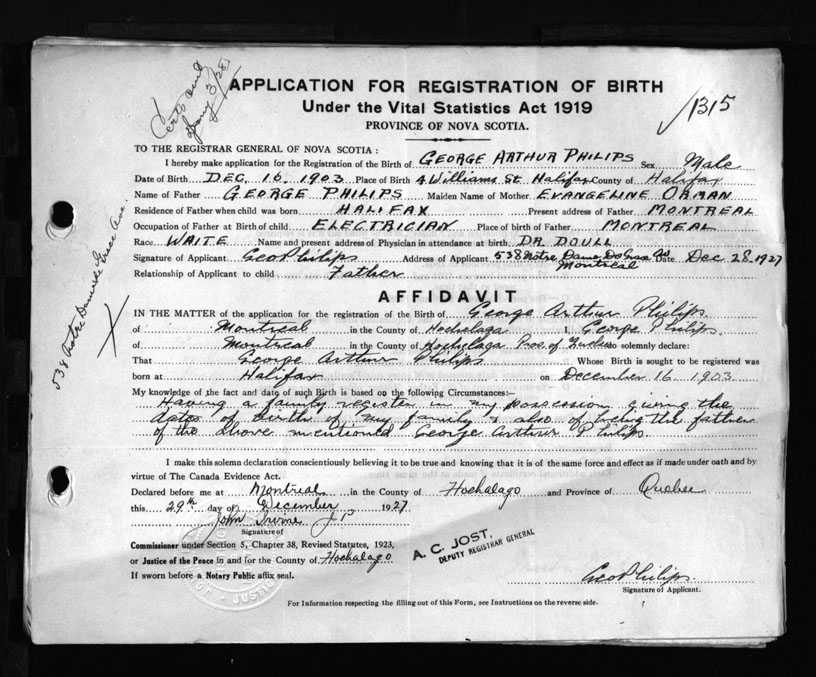 Certs and
Jany 3/28
APPLICATION FOR REGISTRATION OF BIRTH
Under the Vital Statistics Act 1919
PROVINCE OF NOVA SCOTIA.
1315
TO THE REGISTRAR GENERAL OF NOVA SCOTIA:
I hereby make application for the Registration of the Birth of GEORGE ARTHUR PHILIPS Sex Male
Date of Birth DEC. 16. 1903 Place of Birth 4 Williams St Halifax County of Halifax
Name of Father GEORGE PHILIPS Maiden Name of Mother EVANGELINE ORMAN
Residence of Father when child was born HALIFAX Present address of Father MONTREAL
Occupation of Father at Birth of child ELECTRICIAN Place of birth of Father MONTREAL
Race WAITE Name and present address of Physician in attendance at birth DR DOULL
Signature of Applicant Geo Philips Address of Applicant 538 Notre Dame De Grace Av Date Dec 28. 1927
Montreal
Relationship of Applicant to child Father
538 Notre Dame de Grace Ave.
AFFIDAVIT
IN THE MATTER of the application for the registration of the Birth of George Arthur Philips
of Montreal in the County of Hochalaga I, George Philips.
of Montreal in the County of Hochalaga Prov. of Quebec solemnly declare:
That George Arthur Philips Whose Birth is sought to be registered was
born at Halifax on December 16 1903
My knowledge of the fact and date of such Birth is based on the following Circumstances:—
Having a family register in my possession giving the
dates of birth of my family & also of being the father
of the above mentioned George Arthur Philips.
I make this solemn declaration conscientiously believing it to be true and knowing that it is of the same force and effect as if made under oath and by
virtue of The Canada Evidence Act.
Declared before me at Montreal in the County of Hochalago and Province of Quebec
this 29th day of December 1927
John Irvine J P
Signature of
Commissioner under Section 5, Chapter 38, Revised Statutes, 1923,
or Justice of the Peace in and for the County of Hochalago
If sworn before a Notary Public affix seal.
A. C. JOST,
DEPUTY REGISTRAR GENERAL
Geo Philips
Signature of Applicant.
For Information respecting the filling out of this Form, see Instructions on the reverse side.